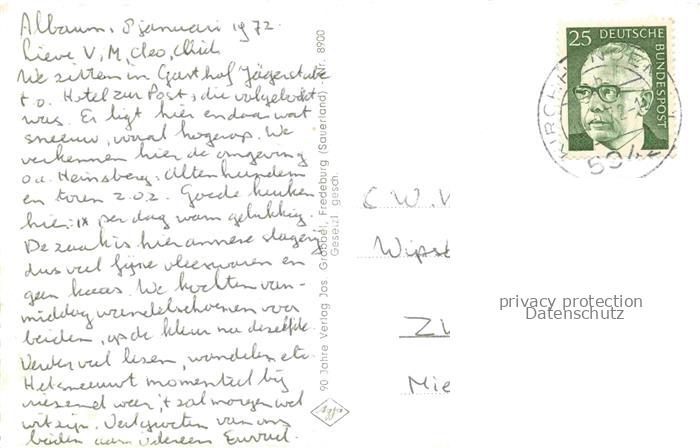 Albaum, 8 januari 1972.
Lieve V, M, Cleo,
We zitten in Gasthof Jägerstube
t.o. Hotel zur Post, die volgeboekt
was. Er ligt hier en daar wat
sneeuw, vooral hogerop. We
verkennen hier de omgeving
o.a. Heinsberg, Altenhundem
en toren z.o.z. Goede keuken
hier: 1x per dag warm gelukkig.
De zaak is hier annexe slagerij
dus veel fijne vleeswaren en
geen kaas. We kochten van-
middag wandelschoenen voor
beiden, op de kleur na dezelfde.
Verder veel lezen, wandelen etc.
Het sneeuwt momenteel bij
vriezend weer, 't zal morgen wel
wit zijn. Veel groeten van ons
beiden aan iedereen
90 Jahre Verlag Jos. Grobbel, Fredeburg (Sauerland) Nr. 8900
Gesetzl. gesch.
25 DEUTSCHE
BUNDESPOST
KIRCHHUNDEM
5942
C.W.V
Wipst
ZW
Mie
privacy protection
Datenschutz